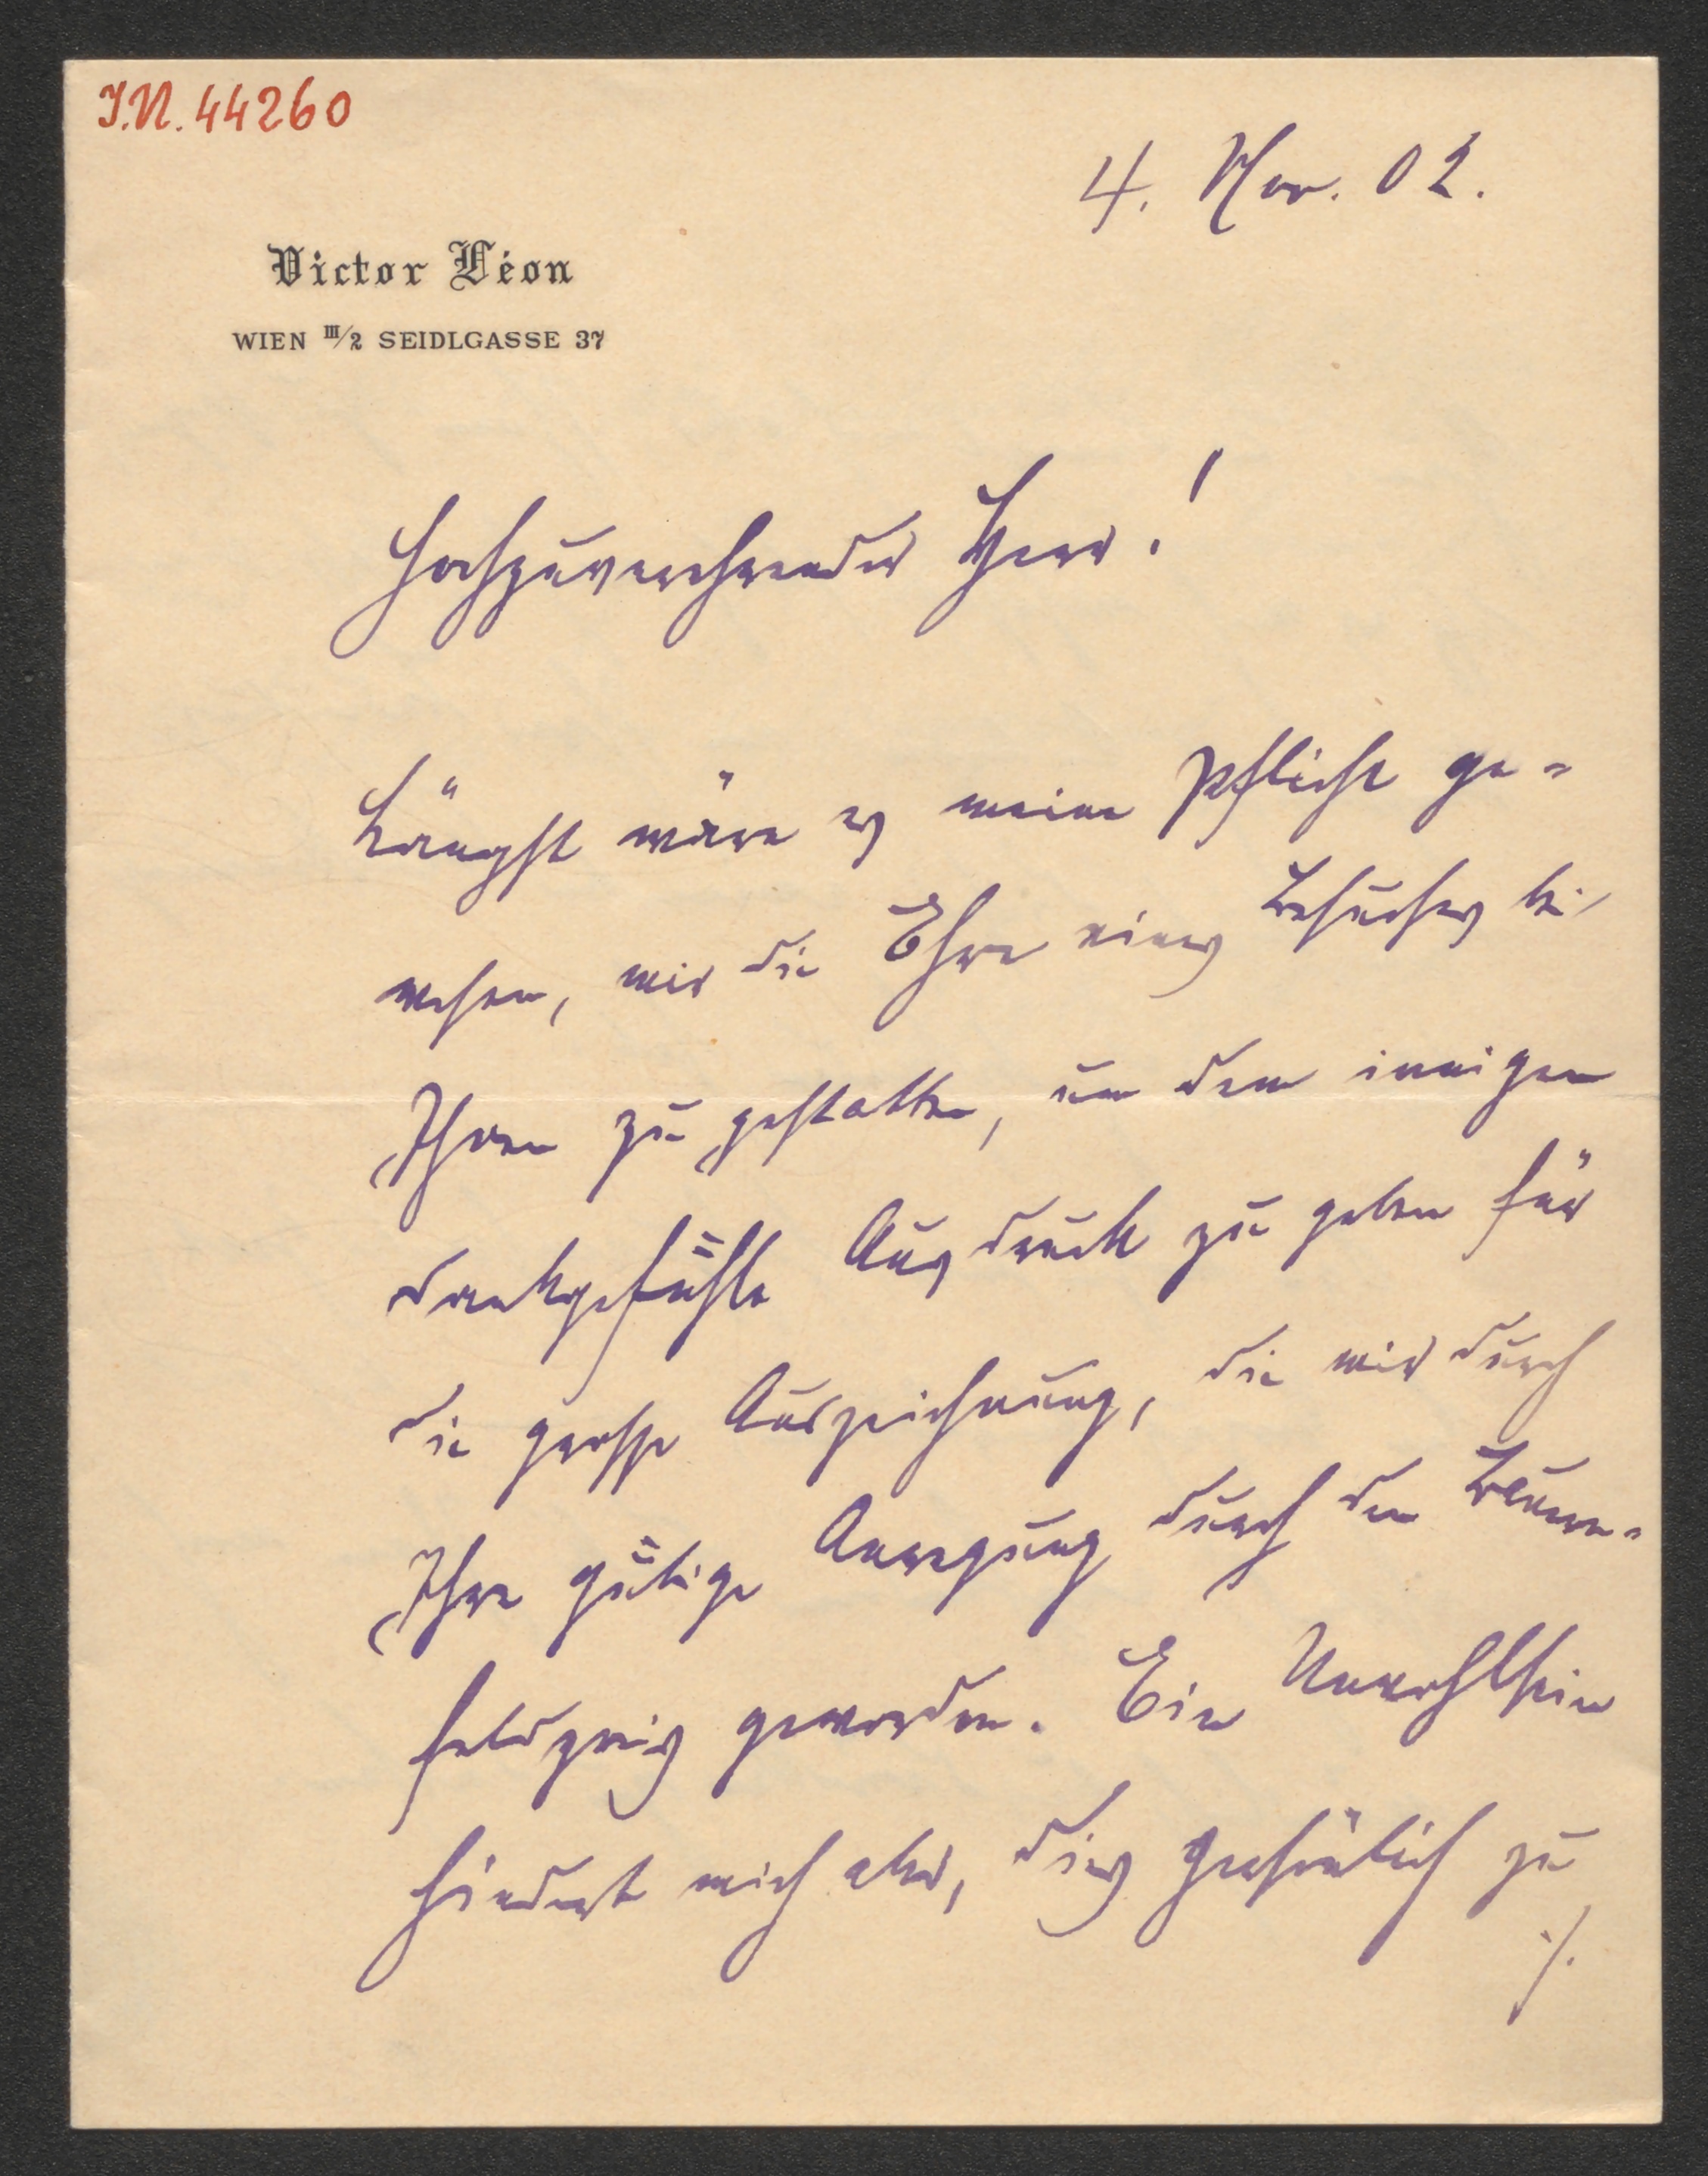 I.N. 44260
4. Nov. 02.
Victor Léon
WIEN III/2 SEIDLGASSE 37
Hochzuverehrender Herr!
Längst wäre es meine Pflicht ge-
wesen, mir die Ehre eines Besuches bei
Ihnen zu gestatten, um dem innigen
Dankgefühle Ausdruck zu geben für
die grosse Auszeichnung, die mir durch
Ihre gütige Anregung durch den Bauern-
feldpreis geworden. Ein Unwohlsein
hindert mich aber, dies persönlich zu
./.